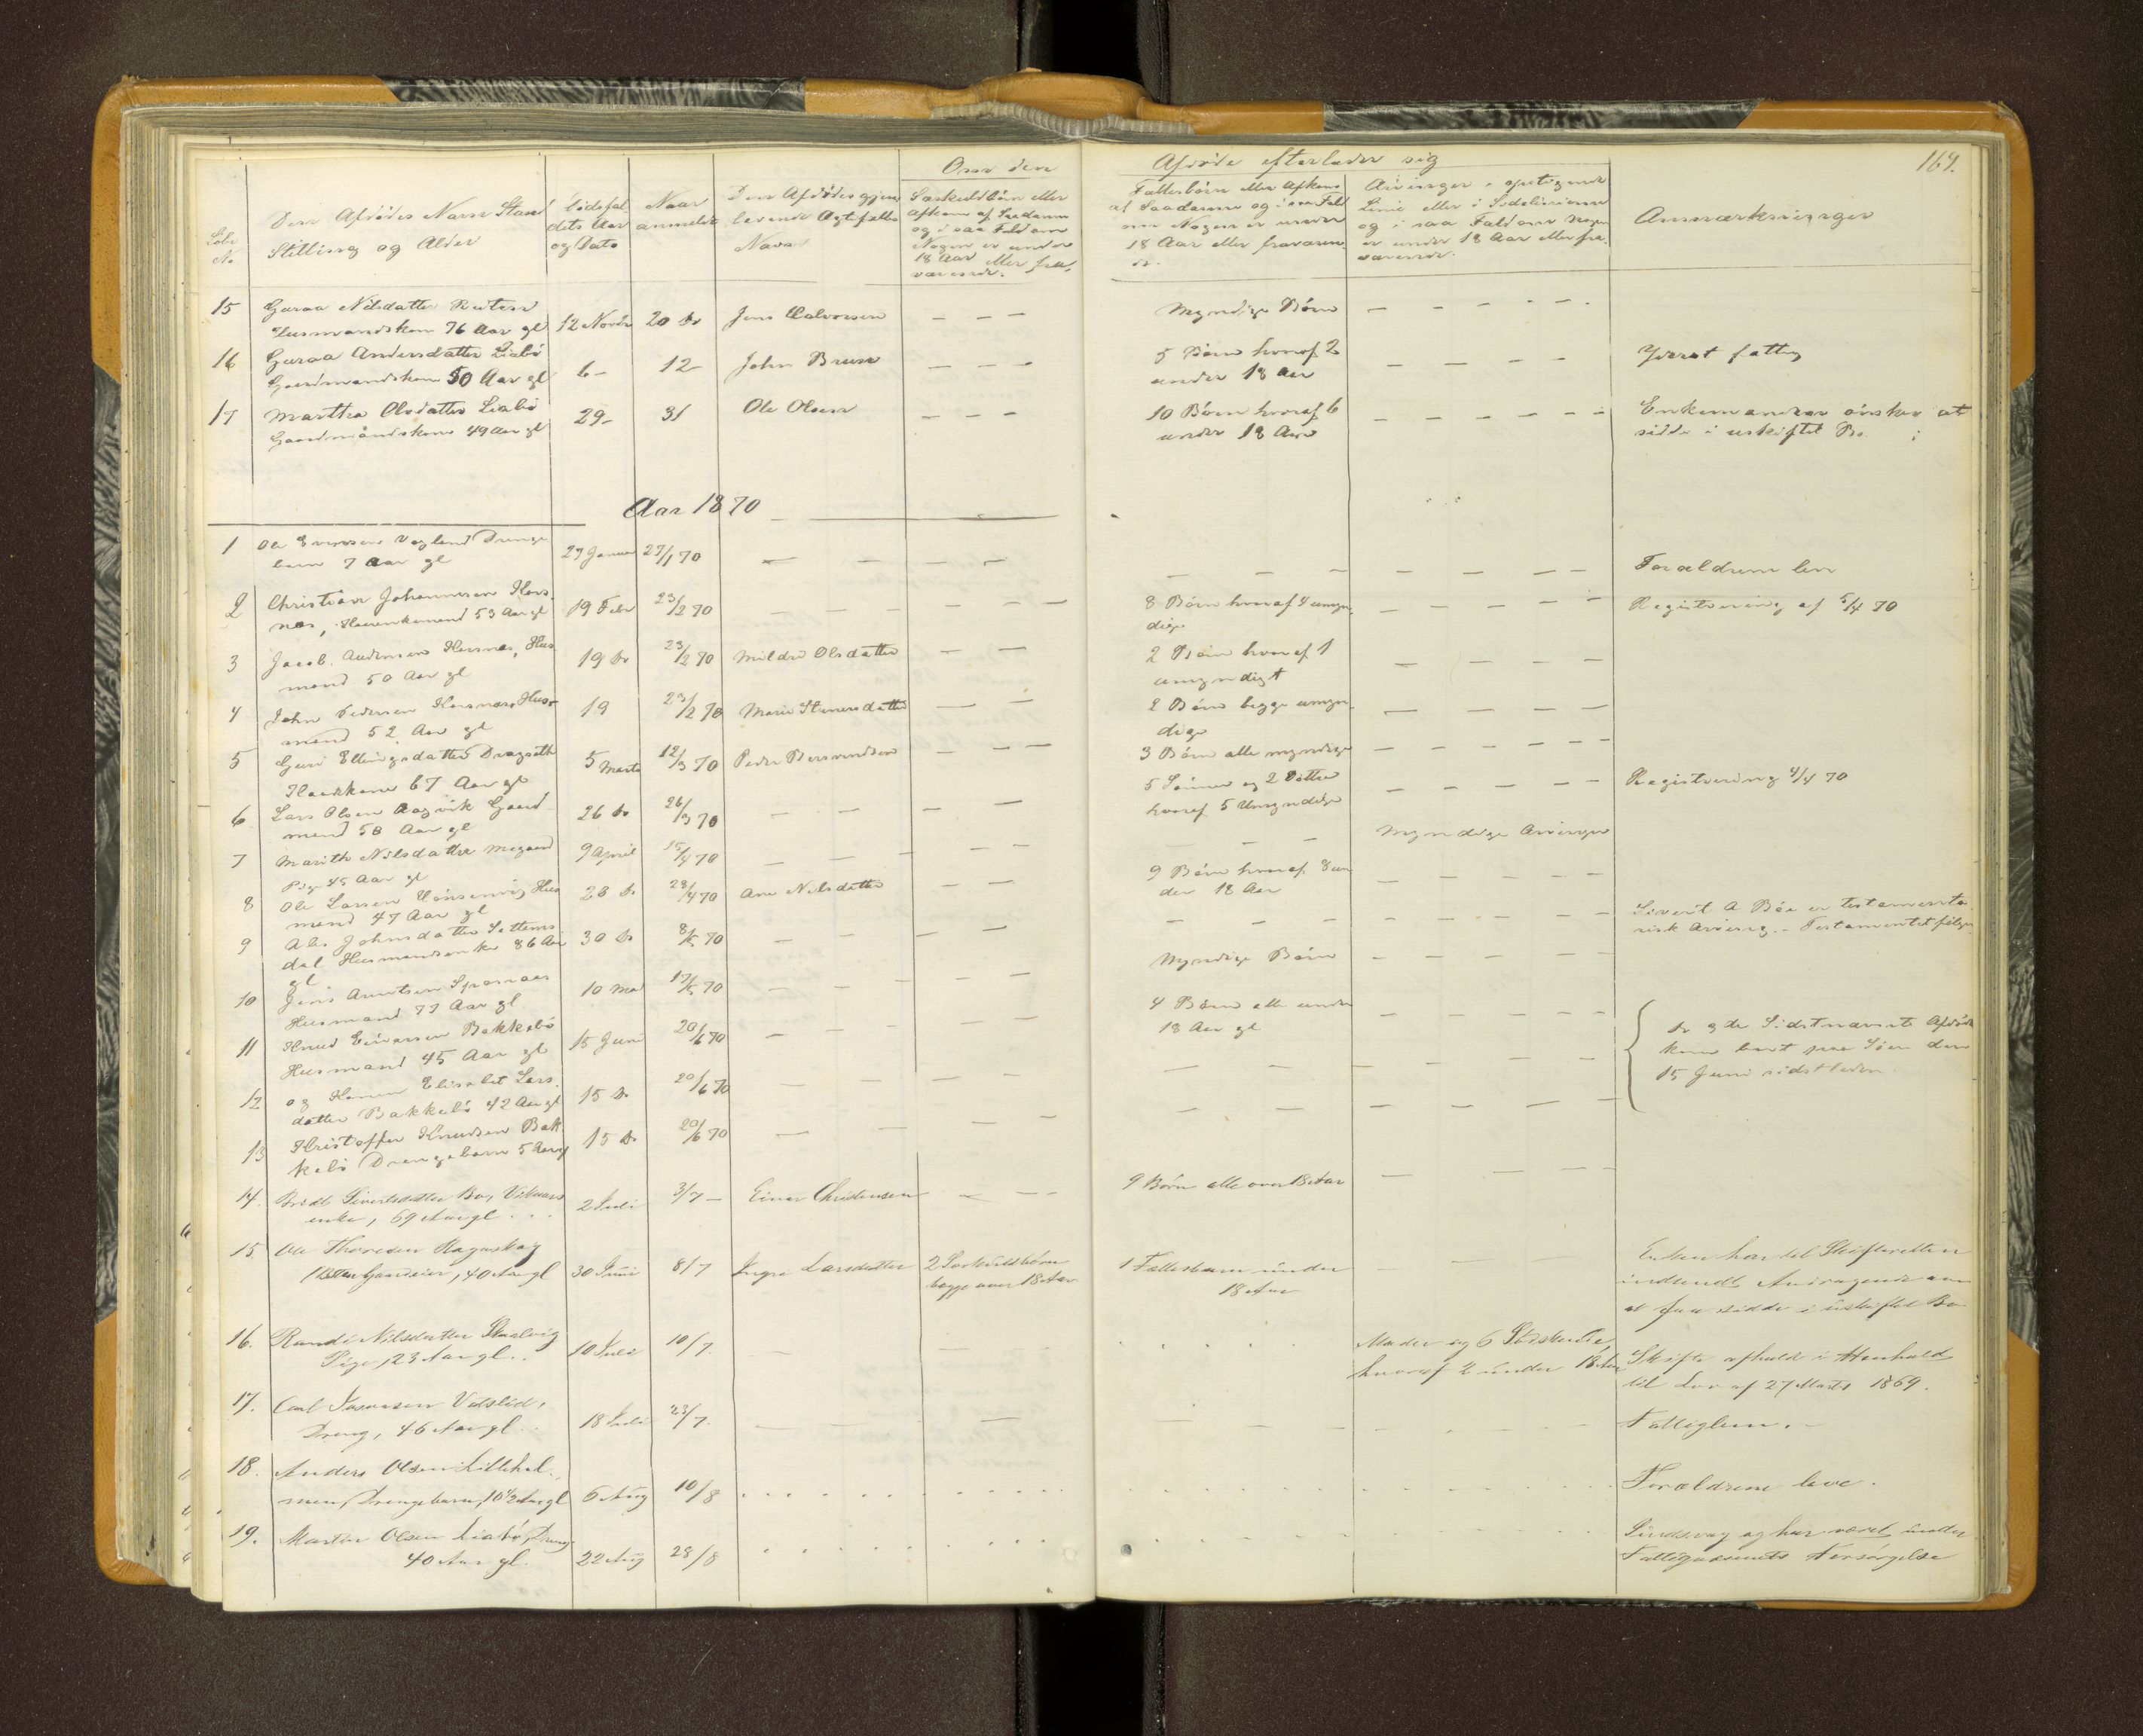 Om den Afdøde efterlader sig
164.
Løbe No.
Den Afdødes Navn Stand Stilling og Alder
Dødsfaldets Aar og Dato
Naar anmeldt
Den Afdødes gjenlevende Ægtefælles Navn
Særkuldbørn eller Afkom af Saadanne og i saa Fald om Nogen er under 18 Aar eller fraværende.
Fællesbørn eller Afkom af Saadanne og i saa Fald om Nogen er under 18 Aar eller fraværende.
Arvinger i opstigende Linie eller i Sidelinierne og i saa Fald om nogen er under 18 Aar eller fraværende.
Anmærkninger
15 Guroa Nilsdatter
Husmandskone 76 Aar gl 12 Novbr 20 do Jens Halvorsen — — — Myndige Børn — — — — —
16 Guroa Andersdatter Liabø
Gaardmandskone 50 Aar gl 6 – 12 – John Bruun — — — 5 Børn hvoraf 2 under 18 Aar — — — — Yderst fattig
17 Martha Olsdatter Liabø
Gaardmandskone 49 Aar gl 29 – 31 Ole Olsen — — — 10 Børn hvoraf 6 under 18 Aar — — — — — Enkemanden ønsker at
sidde i uskiftet Bo.
Aar 1870
1 Ole Evensen Vagland Drenge
barn 7 Aar gl 27 Januar 27/1 70 — — — — — — — — — — — Forældrene leve
2 Christian Johannesen Hors
nes, 53 Aar gl 19 Febr 23/2 70 — — — — — — 8 Børn hvoraf 4 umyn
dige — — — — Registrering af 5/4 70
3 Jacob Andersen Horsnes, Hus
mand 50 Aar gl 19 do 23/2 70 Mildri Olsdatter — — 2 Børn hvoraf 1
umyndigt — — — —
4 John Pedersen Horsnes, Hus
mand 52 Aar gl 19 23/2 70 Marie Stenersdatter — — 2 Børn begge umyn
dige — — — —
5 Guri Ellingsdatter Dragseth
67 Aar gl 5 Marts 12/3 70 Peder — — — 3 Børn alle myndige — — — — —
6 Lars Olsen Aagvik Gaard
mand 58 Aar gl 26 do 26/3 70 — — — — 5 Sønner og 2 Døttre
hvoraf 5 Umyndige — — — — — Registrering 4/4 70
7 Marith Nilsdatter Megaard
Pige 45 Aar gl 9 April 15/4 70 — — — — — — — — Myndige Arvinger
8 Ole Larsen Hønsvig Hus
mand 47 Aar gl 28 do 28/4 70 Ane Nilsdatter — — 9 Børn hvoraf 8 un
der 18 Aar — — — — —
9 Ales Johnsdatter Settems
dal Husmandsenke 86 Aar
gl 30 do 8/5 70 — — — — — — — — — — — — Sivert A Bøe er testamenta
risk Arving. – Testamentet følger
10 Jens Arentsen
Husmand 77 Aar gl 10 Mai 17/5 70 — — — — Myndige Børn — — — — —
11 Knud Einarsen Bakkebø
Husmand 45 Aar gl 15 Juni 20/6 70 — — — — 4 Børn alle under
18 Aar gl — — — — — De 3de Sidstnævnte Afdøde
kom bort paa Søen den
15 Juni sidstleden.
12 og Konen Elisabet Lars
datter Bakkebø 42 Aar gl 15 do 20/6 70 — — — — — — — — — — — —
13 Kristoffer Knudsen Bak
kebø Drengebarn 5 Aar gl 15 do 20/6 70 — — — — — — — — — — — —
14. Sivertsdatter Bo,
enke, 69 Aar gl . . . 2 Juli 3/7 – Einar Christensen — — — 9 Børn alle over 18 Aar — — —
15 Ole Thoresen Magnskag
40 Aar gl 30 Juni 8/7 Ingri Larsdatter 2 Særkuldsbørn
begge over 18 Aar 1 Fællesbarn under
18 Aar — — — Enken har til Skifteretten
indsendt Andragende om
at faa sidde i uskiftet Bo
16. Randi Nilsdatter
Pige, 23 Aar gl. . 10 Juli 10/7. — — — . . . . Moder og 6 Sødskende,
hvoraf 2 under 18 Aar Skifte afholdt i Henhold
til Lov af 27 Marts 1869.
17. Carl Vatslid,
Dreng, 46 Aar gl . . 18 Juli 23/7. — — — — — — — — Fattiglem. –
18. Anders Olsen Lillehol
men, Drengebarn, 10 1/2 Aar gl 6 Aug 10/8 . . . . . . Forældrene leve.
19. Martin Olsen Liabø, Dreng
40 Aar gl. 22 Aug 28/8 . . . . . . Sindssvag og har været under
Fattigvæsenets Forsørgelse